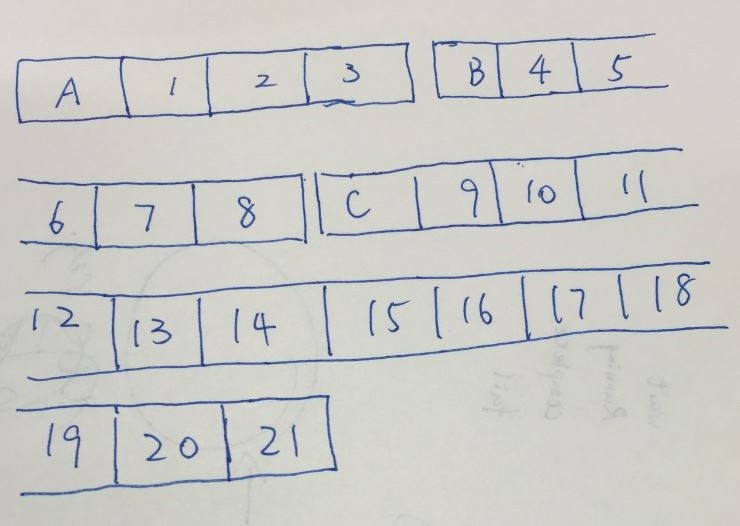 A 1 2 3 B 4 5
6 7 8 C 9 10 11
12 13 14 15 16 17 18
19 20 21